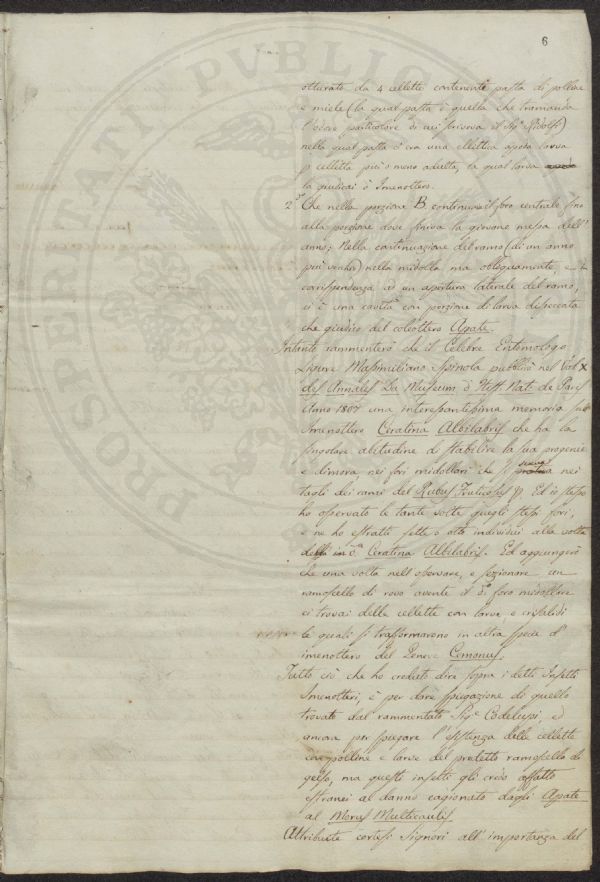 6
otturato da 4 cellette contenente pasta di polline
e miele (la qual pasta è quella che tramanda
l'odore particolare di cui scriveva il Sig.r Ridolfi)
nella qual pasta ci era una ellittica apoda larva
p celletta più o meno adulta, la qual larva
la giudicai d'Imenottero.
2.° Che nella porzione B. continuava il foro centrale fino
alla porzione dove finiva la giovane messa dell'
anno; Nella continuazione del ramo (di un anno
più vecchio) nella midolla ma obliquamente, e in
corrispondenza ad un apertura laterale del ramo,
ci è una cavità con porzione di larva disseccata
che giudico del coleottero Apate.
Intanto rammenterò che il Celebre Entomologo
Ligure Massimiliano Spinola pubblicò nel Vol. X
des Annales Du Museum d'Hist. Nat. de Paris
Anno 1807 una interessantissima memoria sull'
Imenottero Ceratina Albilabris che ha la
singolare abitudine di stabilire la sua progenie
e dimora nei fori midollari che si nei
tagli dei rami del Rubus Fruticosus p. Ed io stesso
ho osservato le tante volte quegli stessi fori,
e ne ho estratti sette o otto individui alla volta
della in d.a Ceratina Albilabris. Ed aggiungerò
che una volta nell'osservare, e sezionare un
ramoscello di rovo avente il d.° foro midollare
ci trovai delle cellette con larve, e crisalidi
le quali si trasformarono in altra specie d'
imenottero del Genere Cemonus.
Tutto ciò che ho creduto dire sopra i detti Insetti
Imenotteri, è per dare spiegazione di quello
trovato dal rammentato Sig.r Codelupi, ed
ancora per spiegare l'esistenza delle cellette
con polline e larve del predetto ramoscello di
gelso, ma questi insetti gli credo affatto
estranei al danno cagionato dagli Apate
al Morus Multicaulis.
Attribuite cortesi Signori all'importanza del